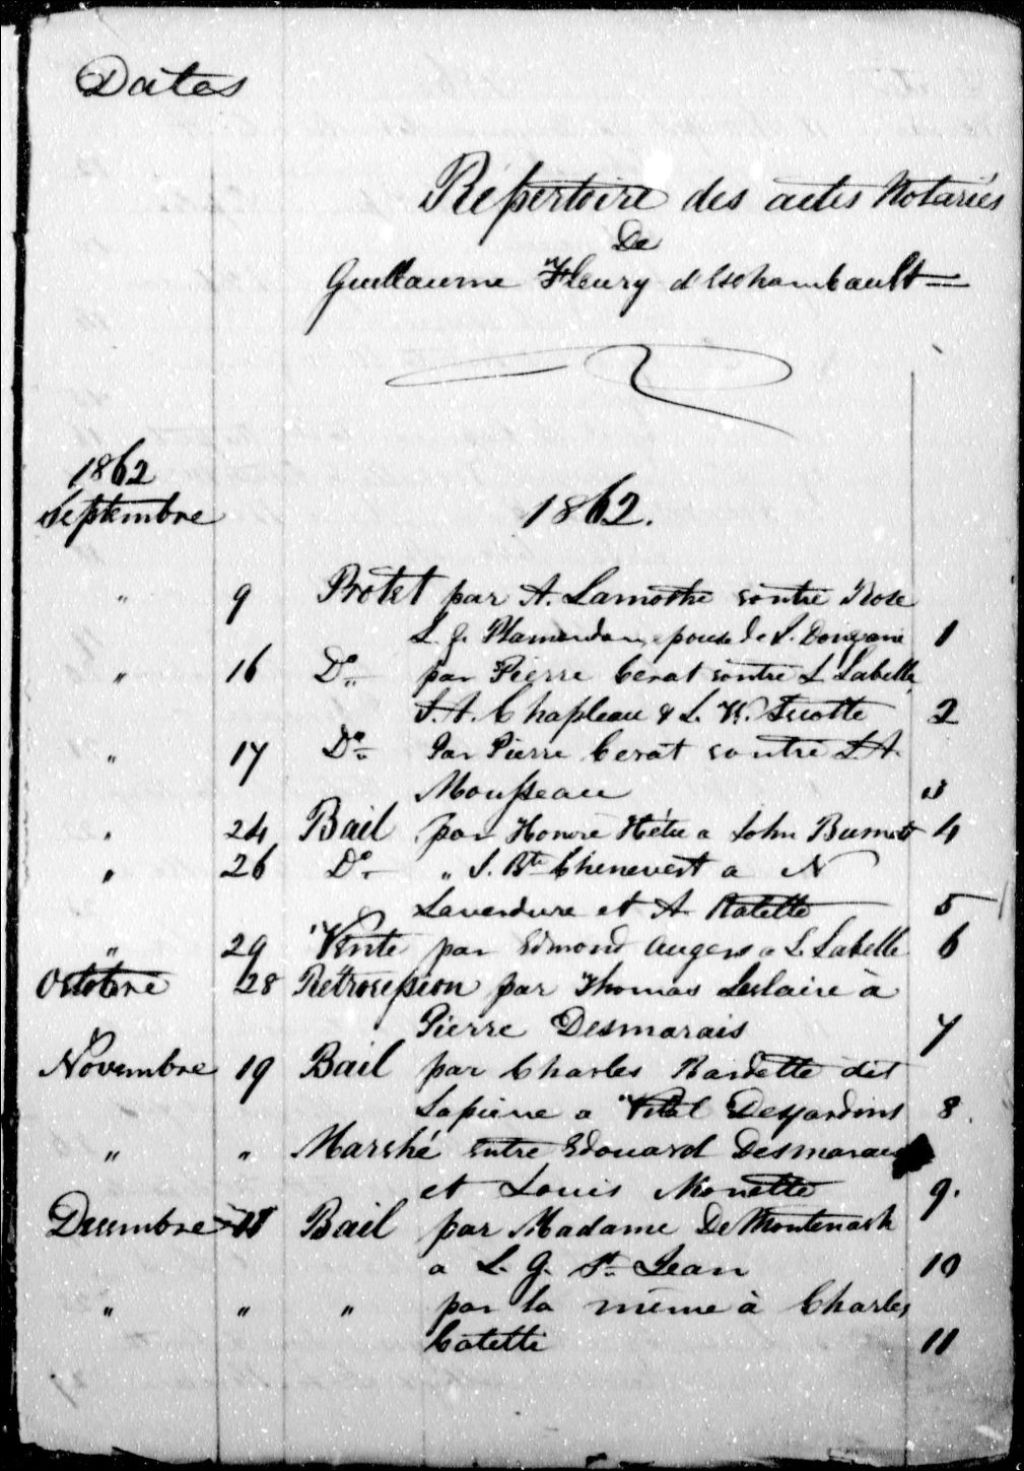 Dates
Répertoire des actes Notariés
De
Guillaume Fleury d'Eschambault
1862
Septembre
1862.
" 9 Protêt par A. Lamothe contre Rose
L. J. Plamondon épouse de S. 1
" 16 Do par Pierre Cerat contre L Labelle,
S. A. Chapleau & L. W. Sicotte 2
" 17 Do Par Pierre Cerat contre L. A.
Mousseau 3
" 24 Bail par Honoré Hétu a John Burnett 4
" 26 Do " J. Bte Chenevert a N
Laverdure et A. Ratelle 5
" 29 Vente par Edmond Augers a L. Labelle 6
Octobre 28 Rétrocession par Thomas Leclaire à
Pierre Desmarais 7
Novembre 19 Bail par Charles Bardette dit
Lapierre a Vital Desjardins 8.
" " Marché entre Edouard Desmarais
et Louis Monette 9.
Decembre Bail par Madame De Montenach
a L. G. St. Jean 10
" " " par la même à Charles
Catelli 11